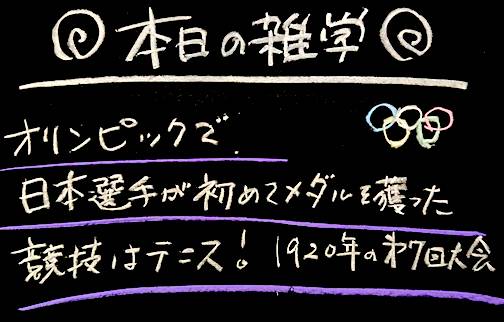 本日の雑学
オリンピックで
日本選手が初めてメダルを獲った
競技はテニス! 1920年の第7回大会